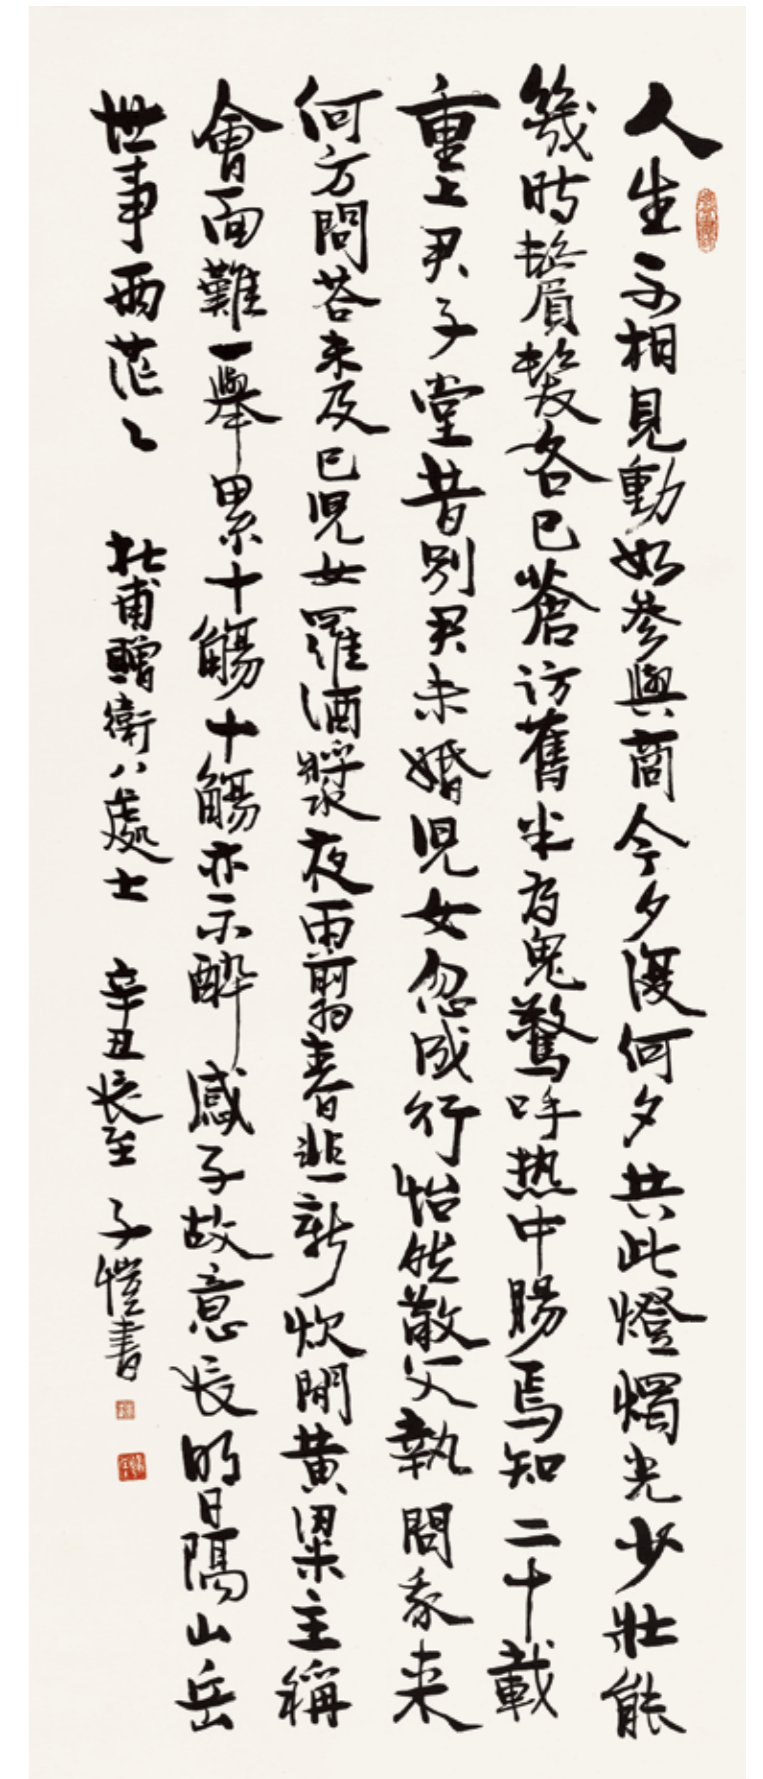 人生不相見動如參與商今夕復何夕共此燈燭光少壯能
幾時鬢髮各已蒼訪舊半為鬼驚呼熱中腸焉知二十載
重上君子堂昔別君未婚兒女忽成行怡然敬父執問我來
何方問荅未及已兒女羅酒漿夜雨翦春韭新炊間黃粱主稱
會面難一舉累十觴十觴亦不醉感子故意長明日隔山岳
世事兩茫〻 杜甫贈衛八處士 辛丑長至 子愷書